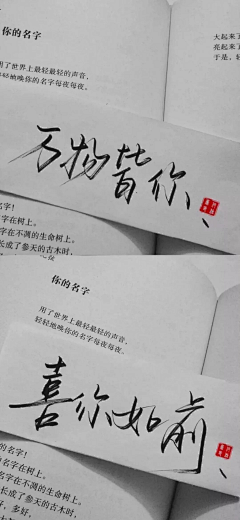 你的名字
用了世界上最轻最轻的声音，
轻轻地唤你的名字每夜每夜。
大起来了
亮起来了
于是，轻
万物皆你、
名字！
字在树上。
字在不凋的生命树上。
长成了参天的古木时，
你的名字
用了世界上最轻最轻的声音，
轻轻地唤你的名字每夜每夜。
喜你如前、
的名字！
名字在树上。
名字在不凋的生命树上。
长成了参天的古木时，
好，多好，